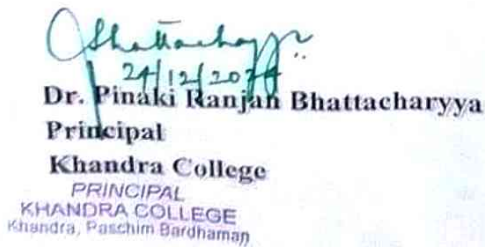 Bhattacharyya
24/12/2024
Dr. Pinaki Ranjan Bhattacharyya
Principal
Khandra College
PRINCIPAL
KHANDRA COLLEGE
Khandra, Paschim Bardhaman